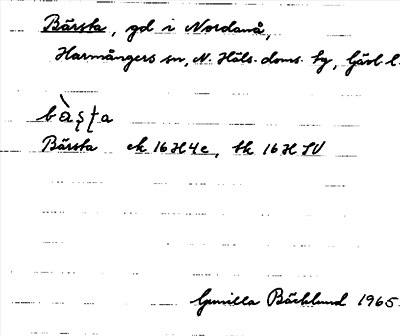 Bärsta, gd i Nordanå,
Harmångers sn, N. Häls. doms. hg, Gävl. l.
bä̀ʂʈa
Bärsta ek 16H4c, tk 16H SV
Gunilla Bäcklund 1965.